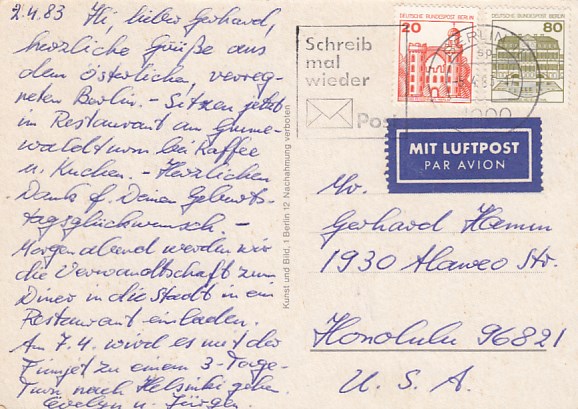 2.4.83 Hi, lieber Gerhard,
herzliche Grüße aus
dem österlichen, verreg-
neten Berlin. – Sitzen jetzt
im Restaurant am Grune-
waldturm bei Kaffee
u. Kuchen. – Herzlichen
Dank f. Deinen Geburts-
tagsglückwunsch. –
Morgen abend werden wir
die Verwandtschaft zum
Diner in die Stadt in ein
Restaurant einladen.
Am 7.4. wird es mit der
Finnjet zu einem 3-Tage-
Turn nach Helsinki gehen.
Evelyn u. Jürgen.
Kunst und Bild, 1 Berlin 12 Nachahmung verboten
Schreib
mal
wieder
Post
BERLIN
1000
DEUTSCHE BUNDESPOST BERLIN
20
DEUTSCHE BUNDESPOST BERLIN
80
MIT LUFTPOST
PAR AVION
Mr.
Gerhard Hamm
1930 Alaweo Str.
Honolulu 96821
U. S. A.